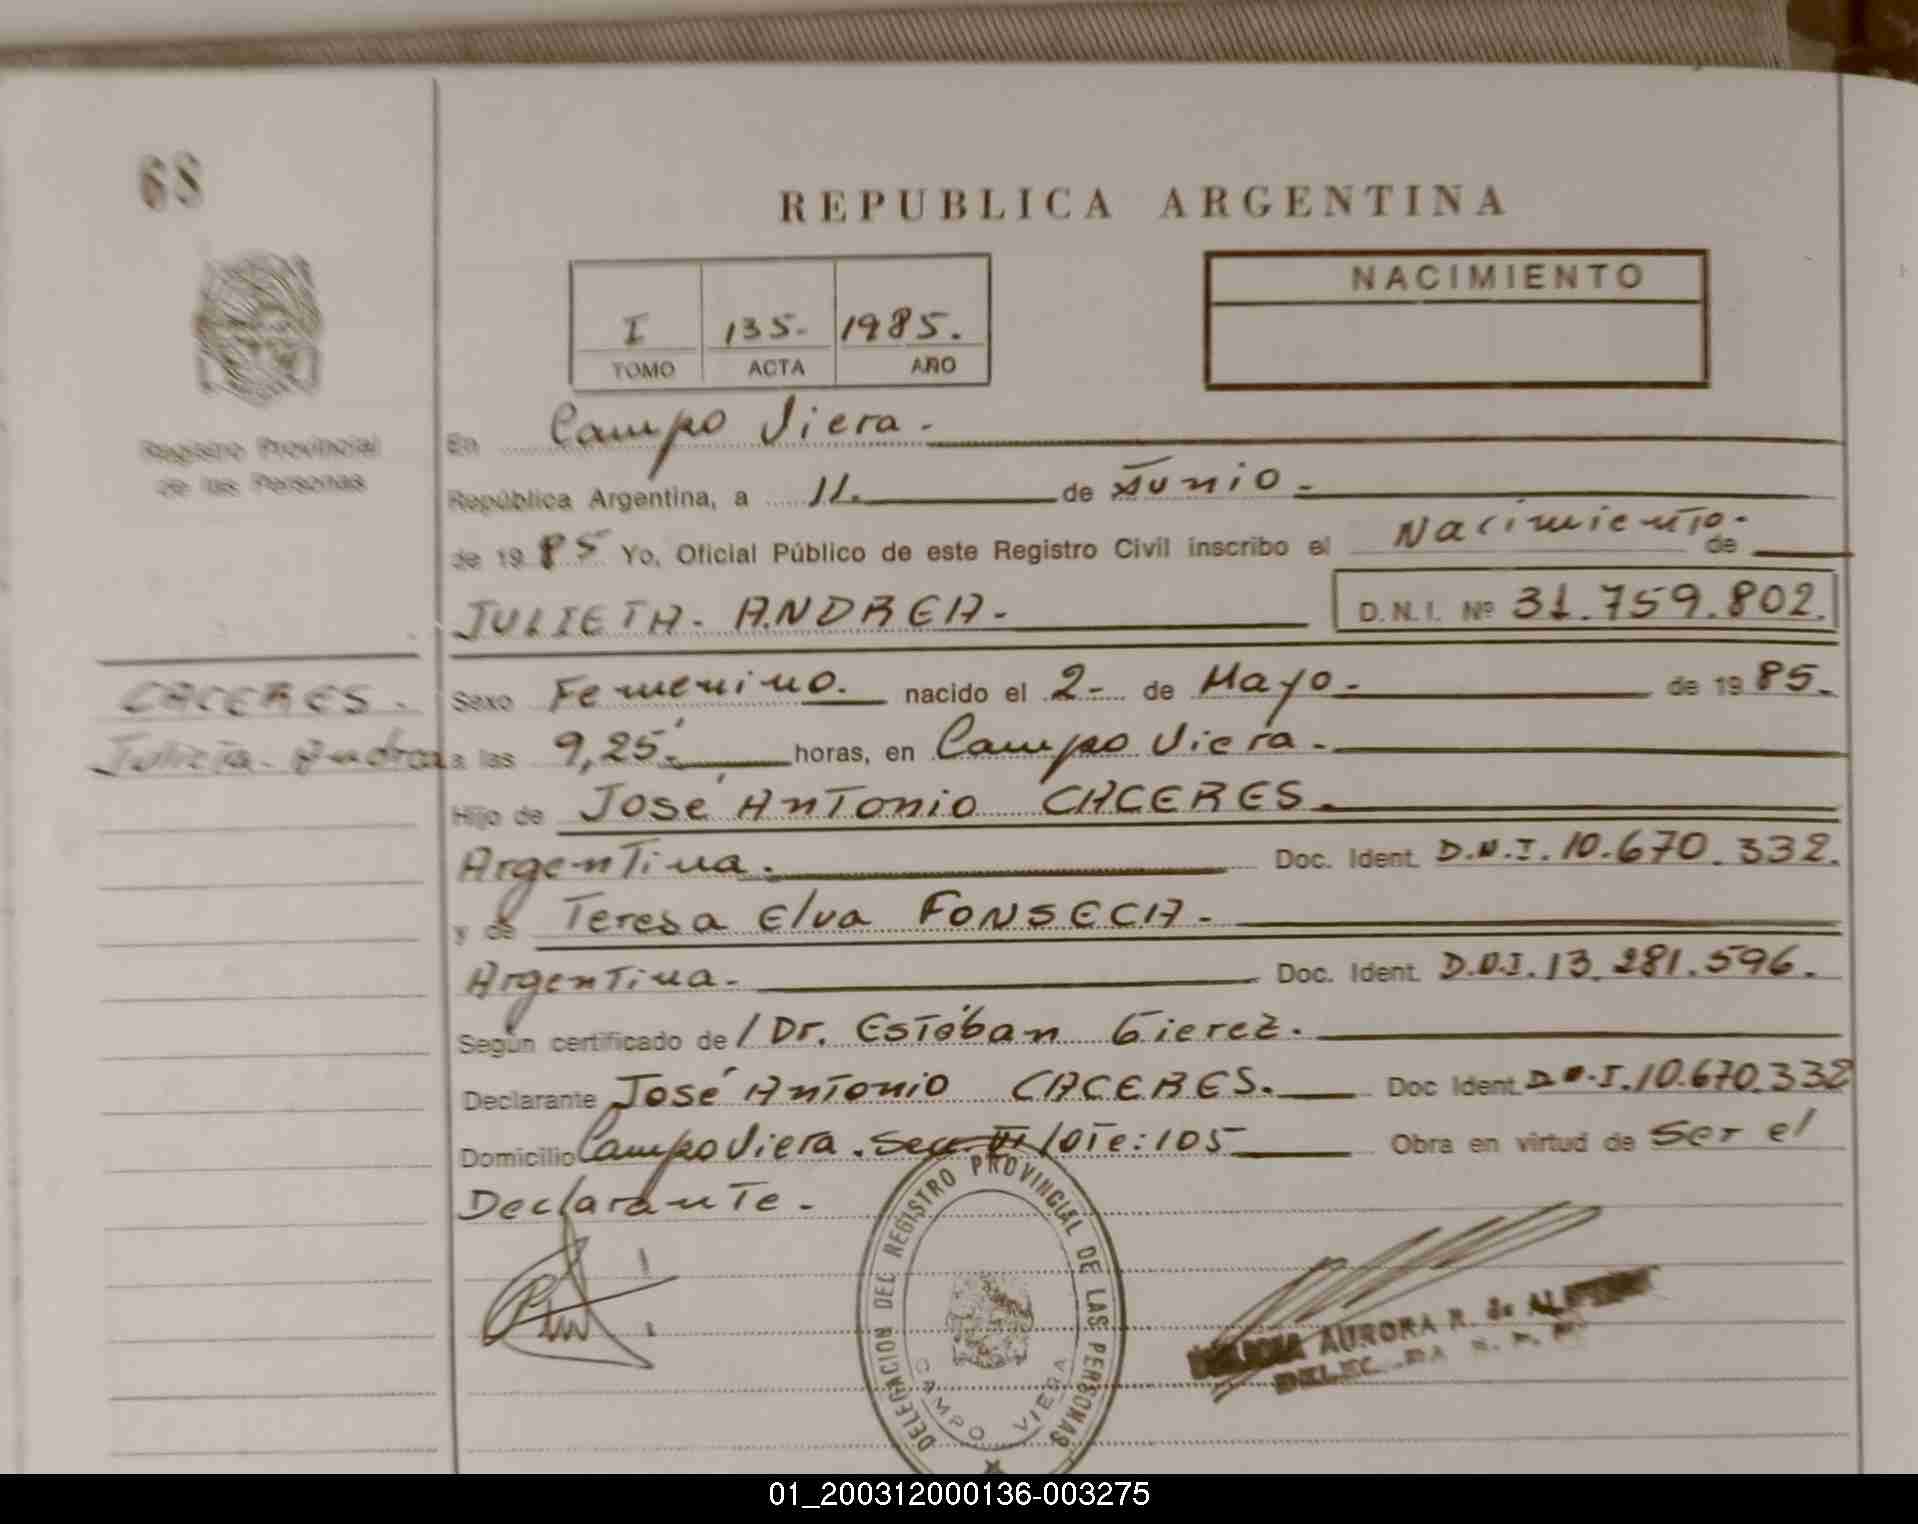 68
REPUBLICA ARGENTINA
NACIMIENTO
I 135- 1985.
TOMO ACTA AÑO
Registro Provincial
de las Personas
En Campo Viera.
República Argentina, a 11. de Junio.
de 1985 Yo, Oficial Público de este Registro Civil inscribo el Nacimiento. de
JULIETA. ANDREA. D.N.I. Nº 31.759.802.
CACERES.
Julieta. Andrea
Sexo Femenino. nacido el 2- de Mayo. de 1985.
a las 9,25. horas, en Campo Viera.
Hijo de José Antonio CACERES.
Argentina. Doc. Ident. D.N.I. 10.670.332.
y de Teresa Elva FONSECA.
Argentina. Doc. Ident. D.N.I. 13.281.596.
Según certificado de / Dr. Esteban Gierez.
Declarante José Antonio CACERES. Doc Ident. D.N.I. 10.670.332
Domicilio Campo Viera. Sec. VI lote: 105 Obra en virtud de Ser el
Declarante.
DELEGACION DEL REGISTRO PROVINCIAL DE LAS PERSONAS
CAMPO VIERA
AURORA R. de
01_200312000136-003275